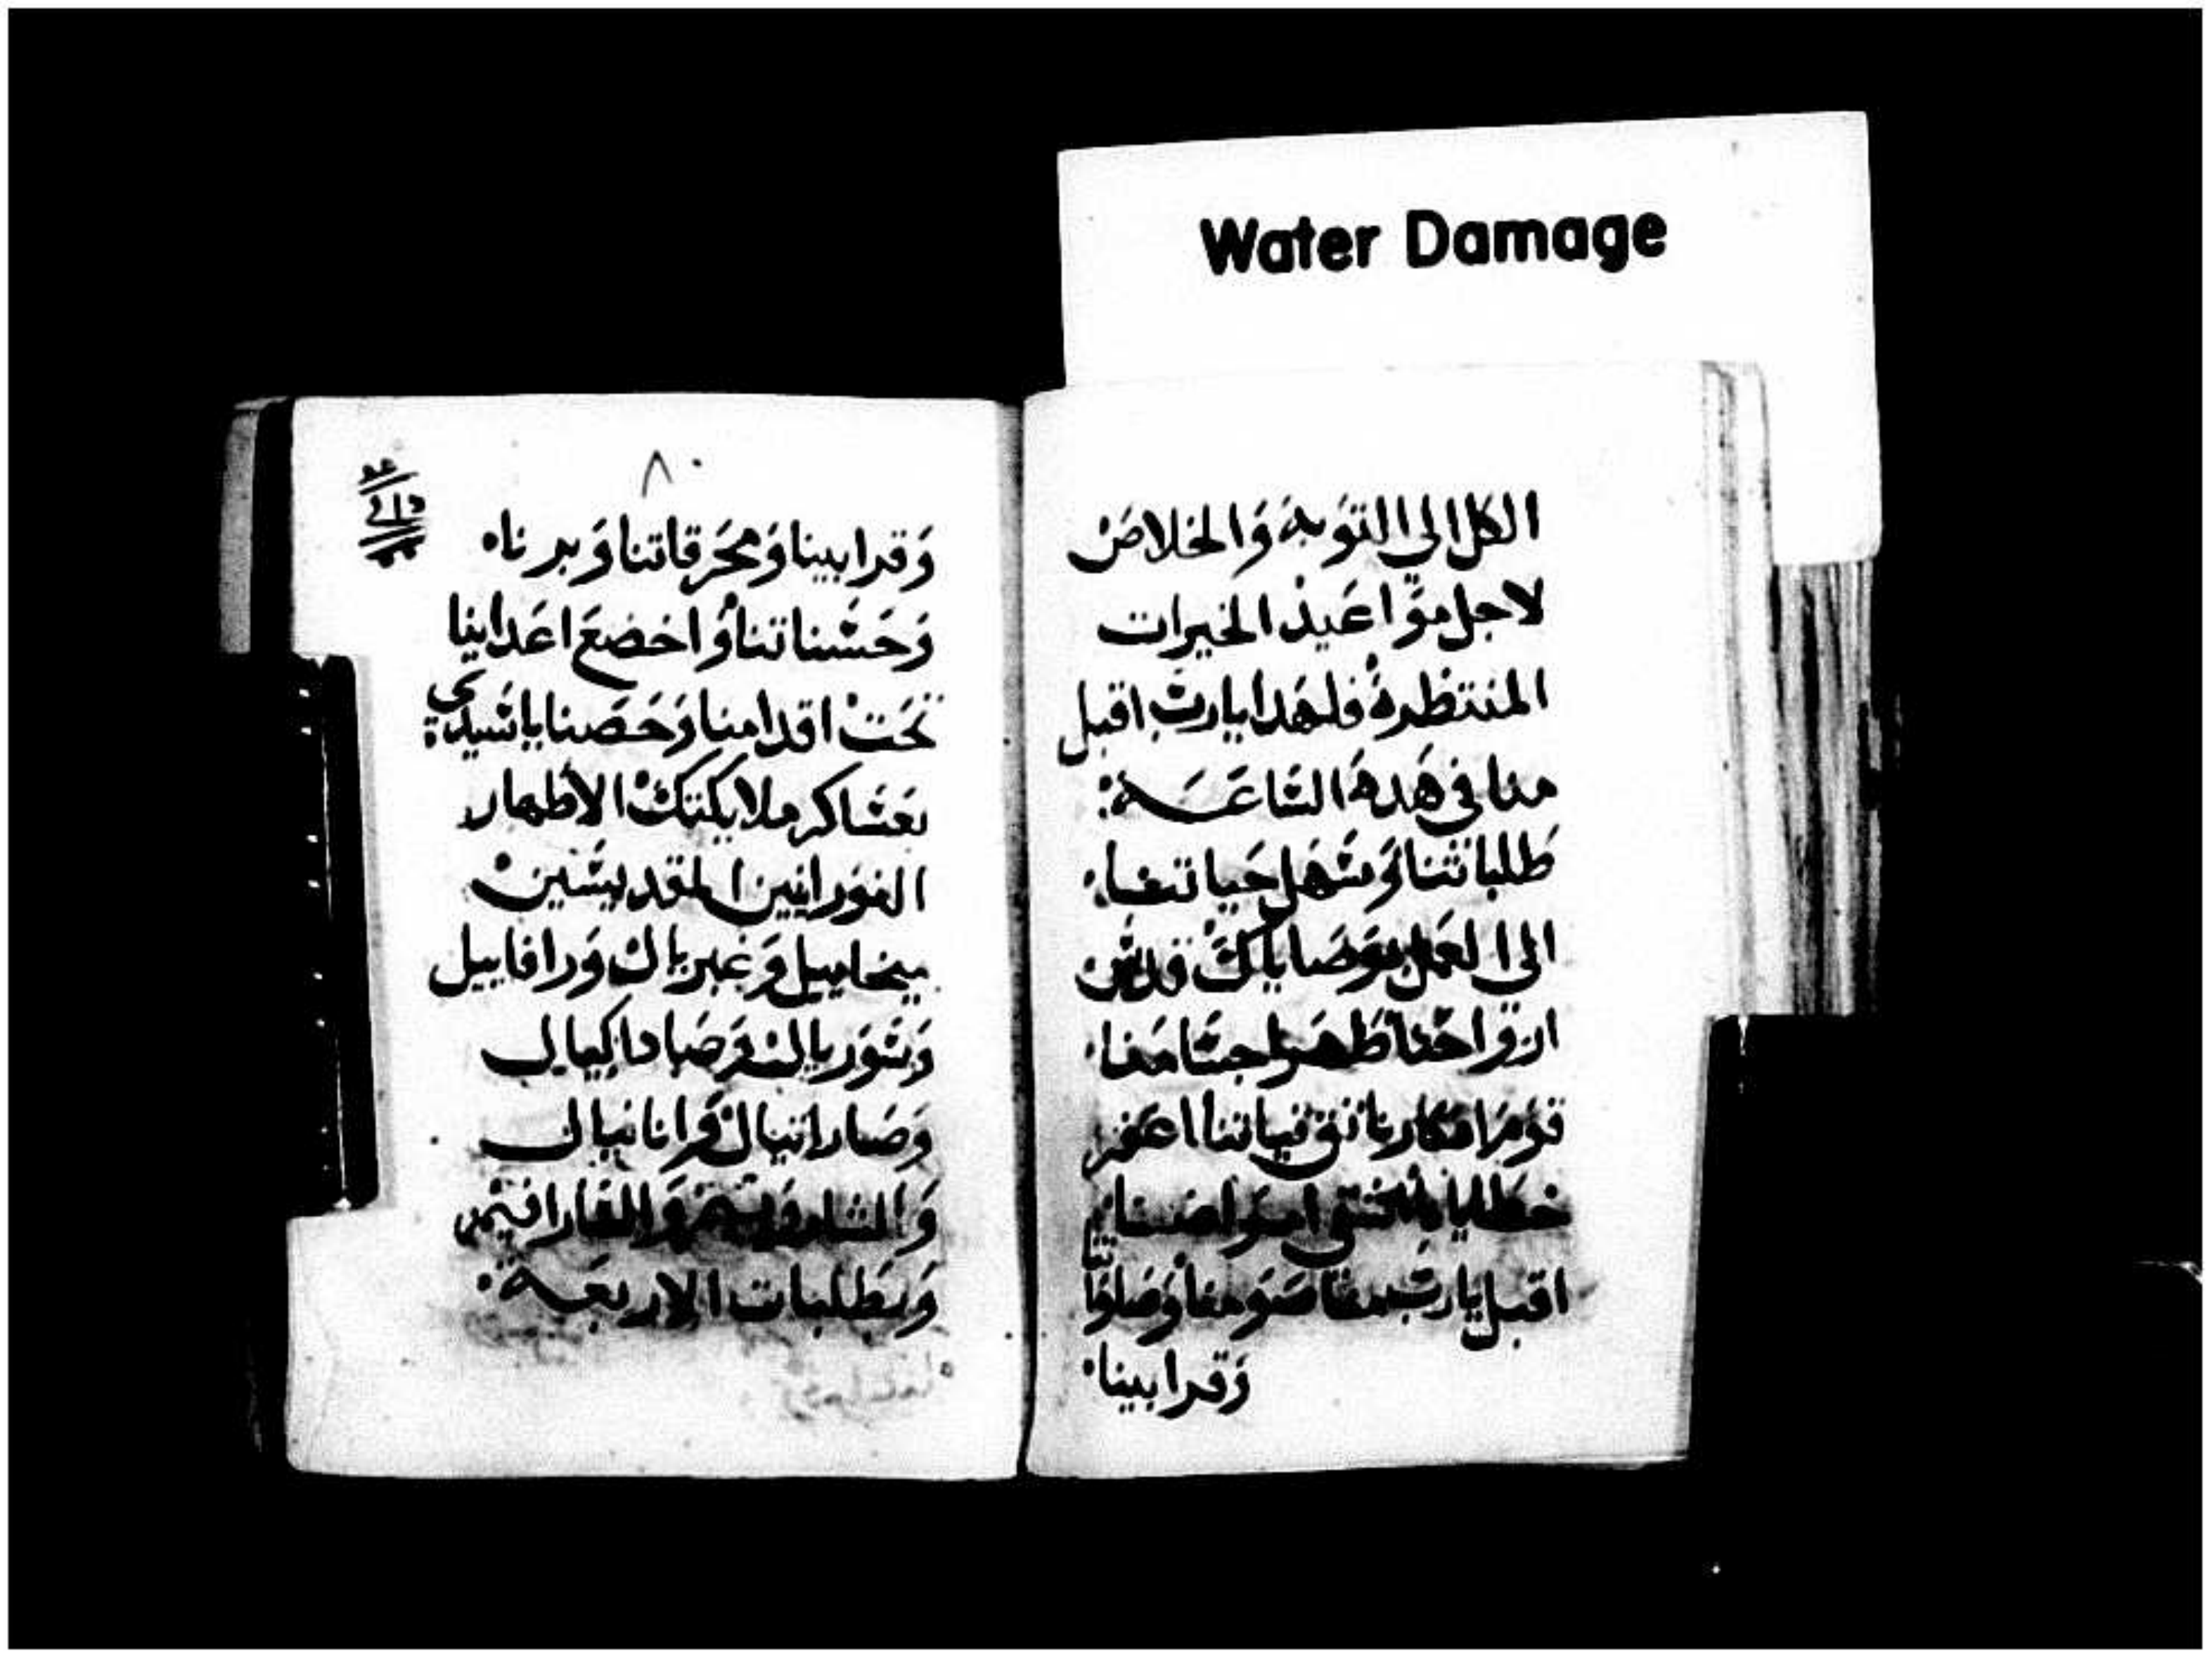 Water Damage
الكل الي التوبة والخلاص
لاجل مواعيد الخيرات
المنتظرة فلهدا يارب اقبل
منا في هده الساعة
طلباتنا وسهل حياتنا
الي العمل بوصاياك قدس
ارواحنا طهر اجسامنا
قوم افكارنا نقي نياتنا اغفر
خطايانا امراضنا
اقبل يارب منا صومنا وصلواتنا
وقرابينا
٨٠
وقرابينا ومحرقاتنا وبرنا
وحسناتنا واخضع اعداينا
تحت اقدامنا وحصنا ياسيدي
بعساكر ملايكتك الاطهار
النورانيين المقديسين
ميخاييل وغبريال ورافاييل
وسوريال وصاداكيال
وصاراتيال وانانيال
والشاروبيم والسارافيم
وبطلبات الاربعة